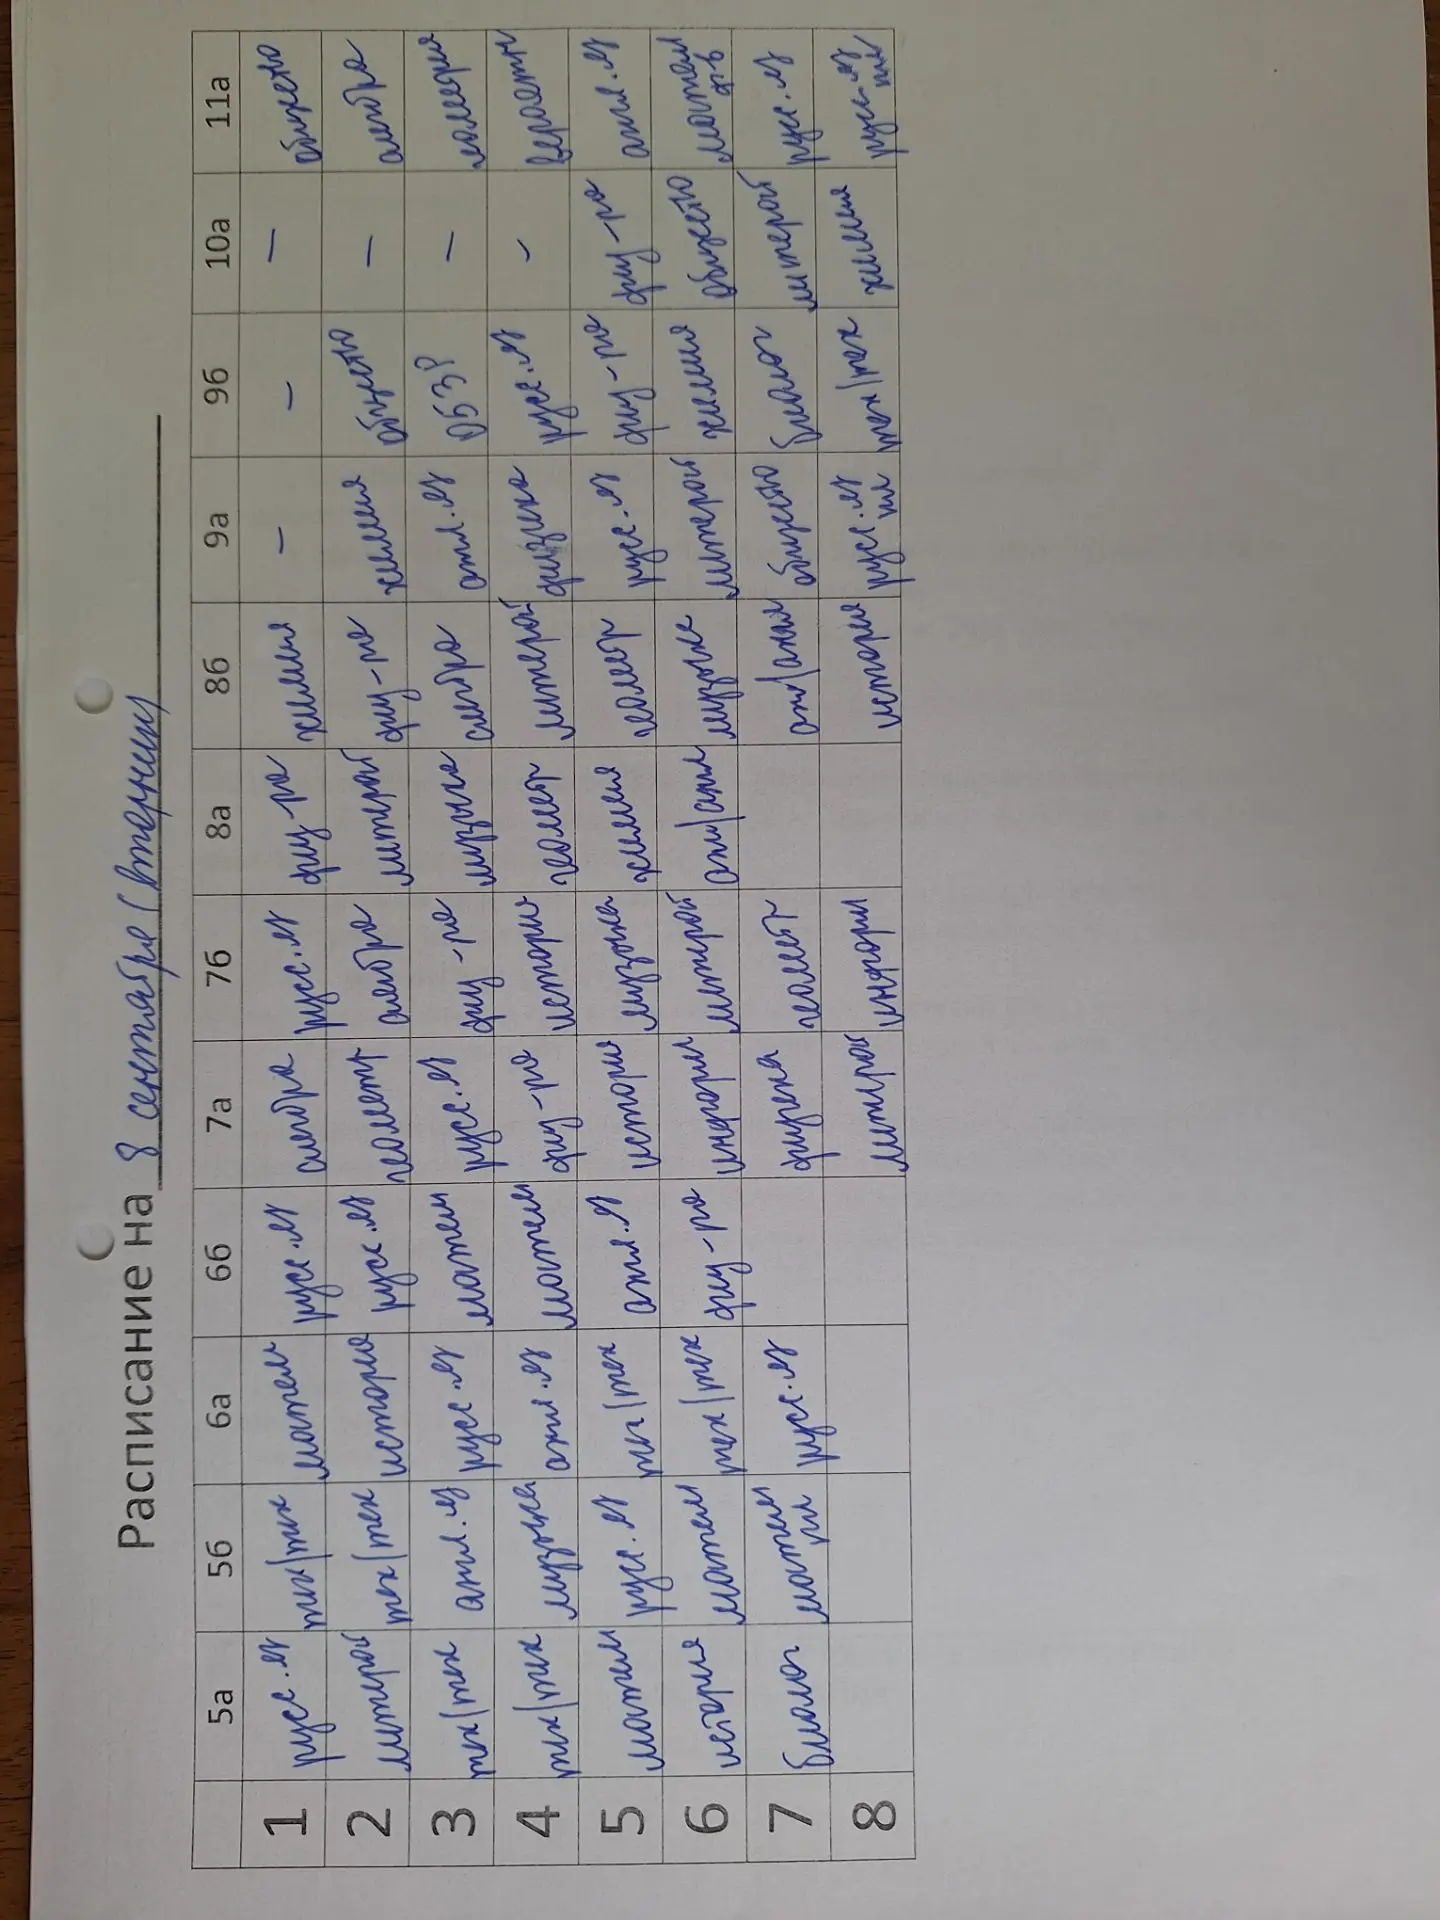 Расписание на 8 сентября (вторник)
5а 5б 6а 6б 7а 7б 8а 8б 9а 9б 10а 11а
1 русс.яз тех/тех матем русс.яз алгебра русс.яз физ-ра химия — — — общество
2 литерат тех/тех история русс.яз геометр алгебра литерат физ-ра химия общество — алгебра
3 тех/тех англ.яз русс.яз матем русс.яз физ-ра музыка алгебра англ.яз ОБЗР — геометрия
4 тех/тех музыка англ.яз матем физ-ра истори геометр литерат физика русс.яз - вероятн
5 матем русс.яз тех/тех англ.яз истори музыка химия геометр русс.яз физ-ра физ-ра англ.яз
6 история матем тех/тех физ-ра информ литерат англ/англ музыка литерат химия общество матем ф-в
7 биолог матем ин русс.яз физика геометр англ/англ общество биолог литерат русс.яз
8 литерат информ история русс.яз ин тех/тех химия русс.яз ин